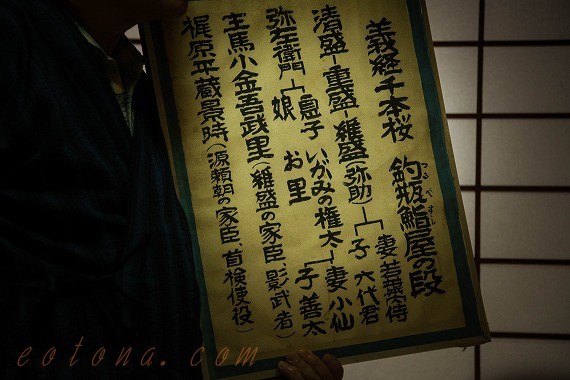 義経千本桜 釣瓶鮨屋の段
つるべずし
清盛 重盛 維盛(弥助) 妻 若葉内侍
子 六代君
弥左衛門 息子 いがみの権太 妻 小仙
子 善太
娘 お里
主馬小金吾武里(維盛の家臣、影武者)
梶原平蔵景時(源頼朝の家臣、首検使役)
eotona.com